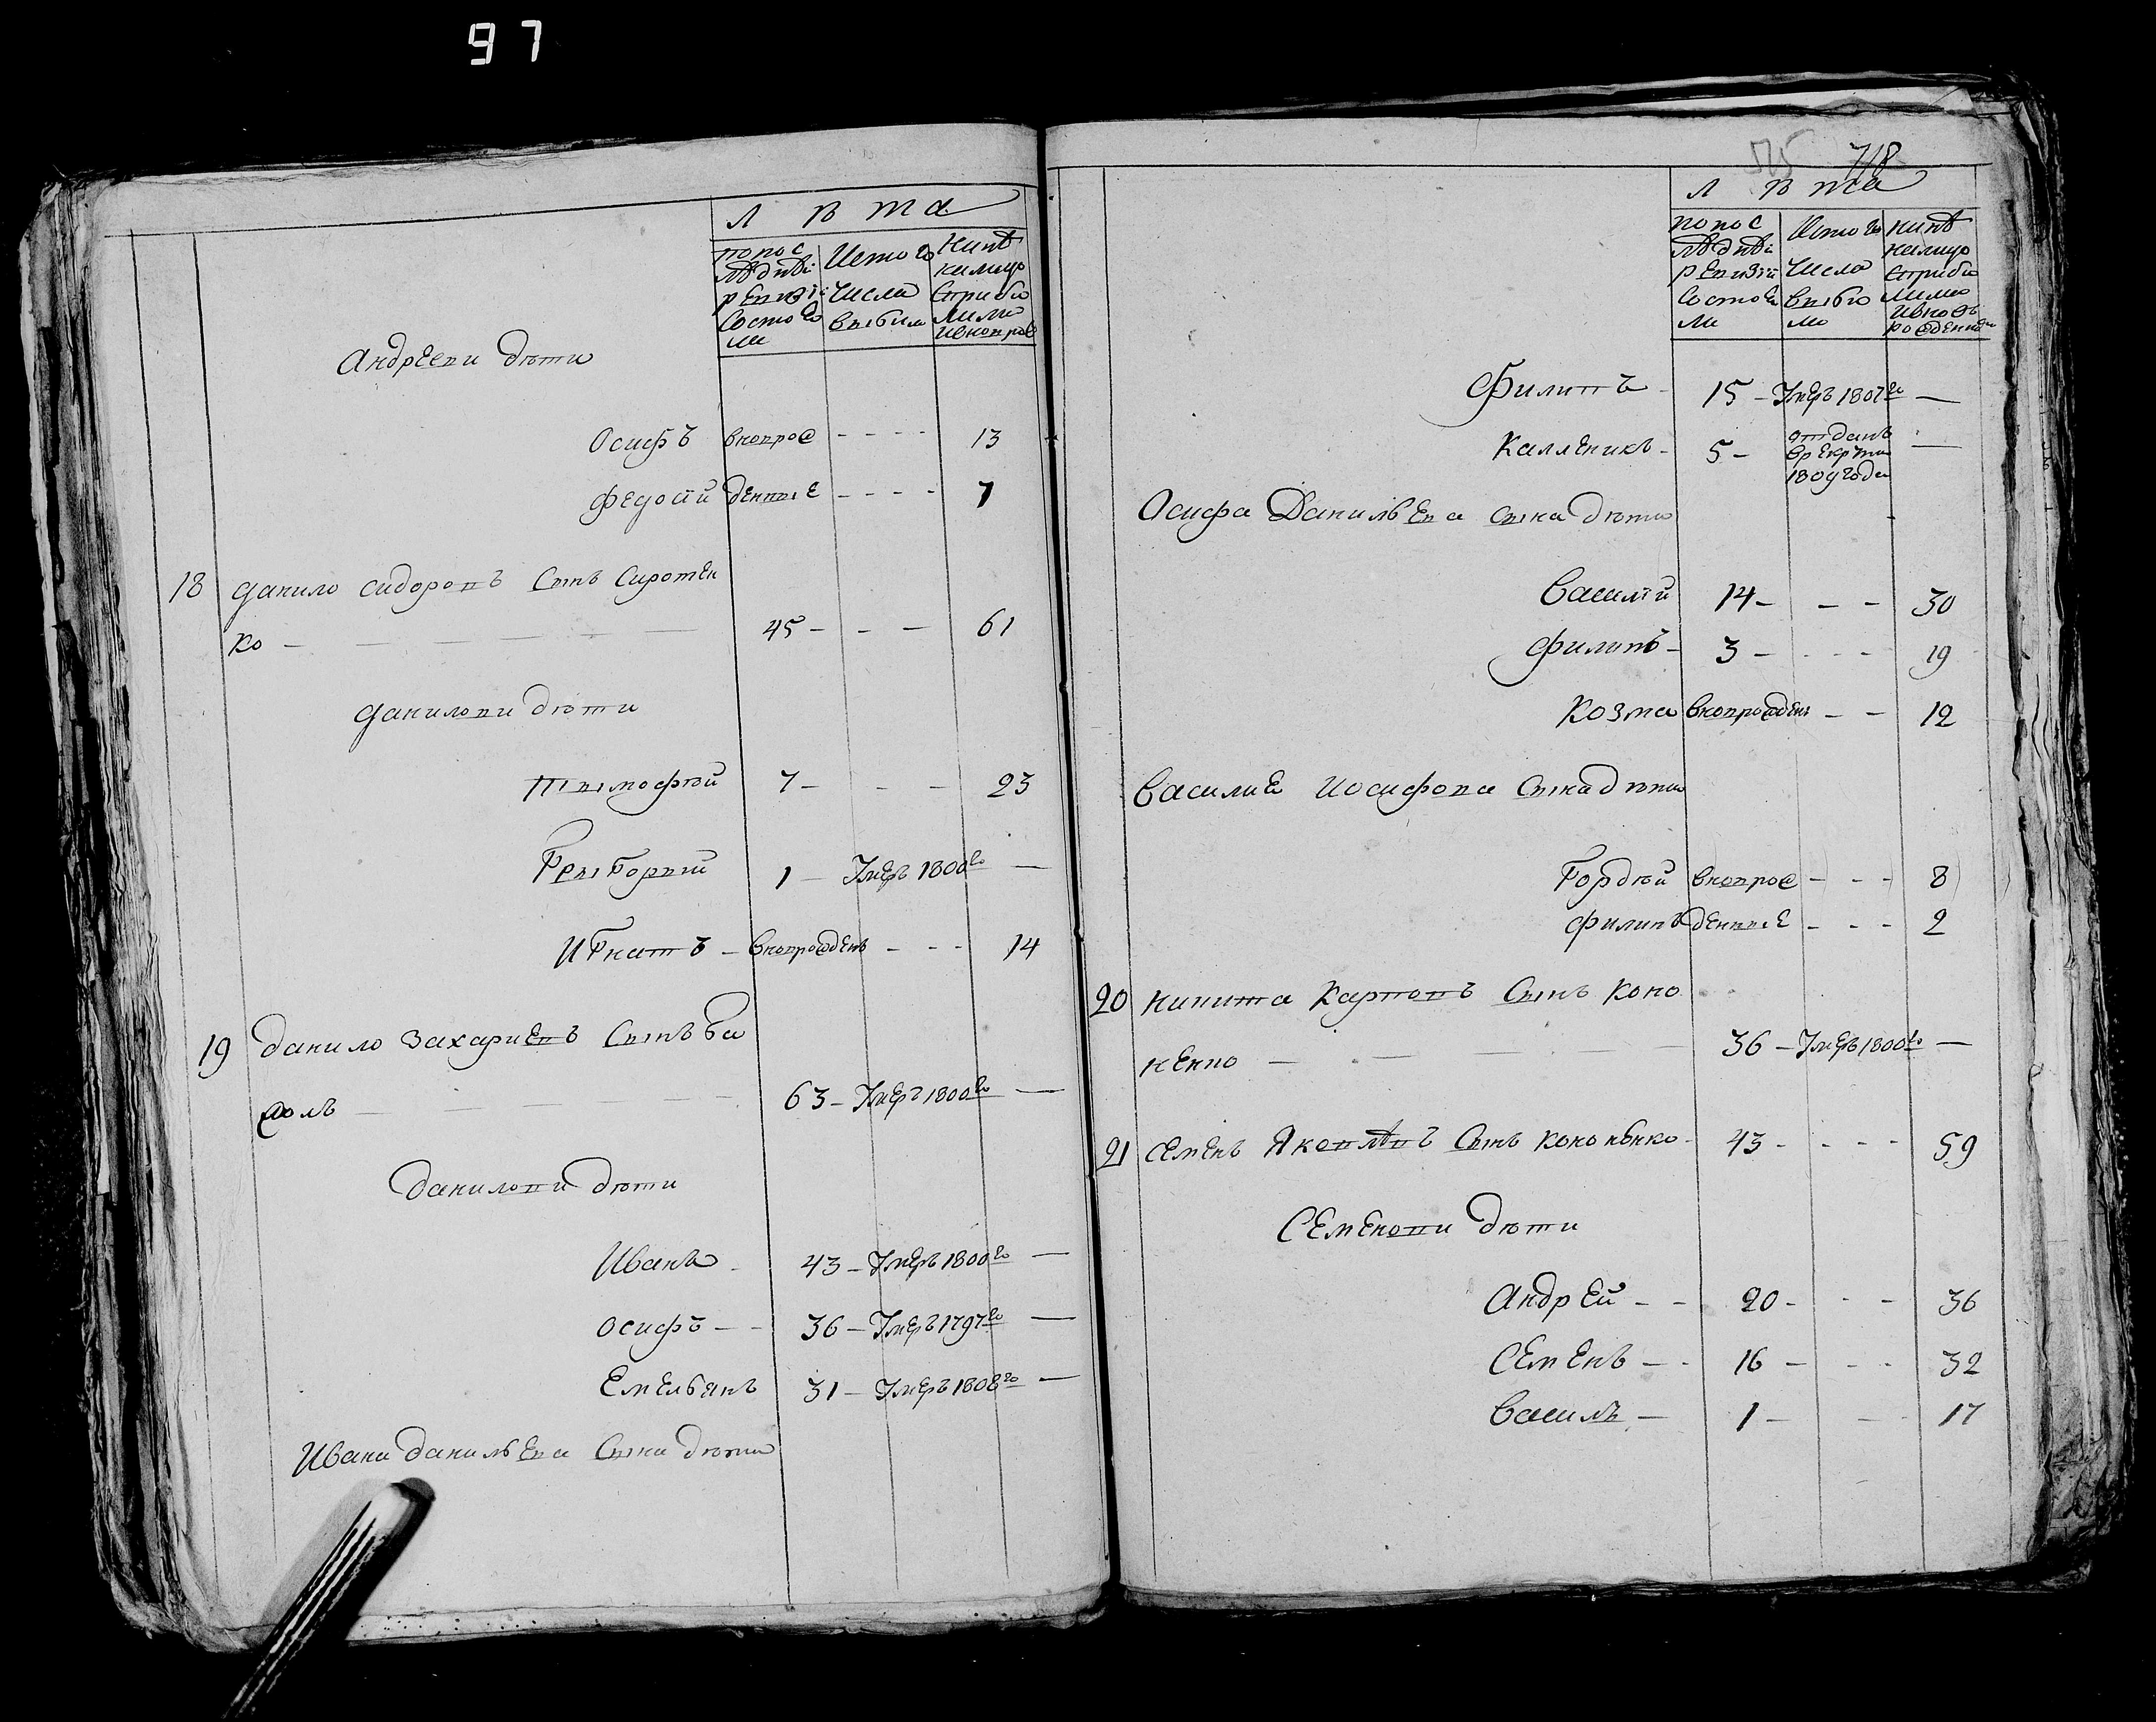 97
Лѣта
попос
лѣднѣй
ревизіи
состояли
Исто го
числа
выбыло
Нинѣ
налицо
Андрееви дѣти
Осифъ вновро ж - - - - 13
Федосій денные - - - - 7
18 Данило Сидоровъ Сынъ Сиротен
ко - 45 - - - 61
Данилови дѣти
Тымофѣй 7 - - - 23
Грыгорый 1 - Умеръ 1800го —
Игнатъ - вноврожденъ - - - 14
19 Данило Захариевъ Сынъ Ба
жолъ 63 - Умеръ 1800го —
Данилови дѣти
Иванъ - 43 - Умеръ 1800го —
Осифъ - - 36 - Умеръ 1797го —
Емельянъ 31 - Умеръ 1808го —
Ивана Данильева Сына дѣти
718
Лѣта
попос
лѣднѣй
ревизіи
состоя
ли
Исто го
числа
выбы
ло
нинѣ
налицо
ивновь
рожденны
Филипъ - 15 - Умеръ 1807го —
Калленикъ - 5 - отданъ
врекруты
1809 года —
Осифа Данильева сына дѣти
Василій 14 - - - 30
Филипъ - 3 - - - - 19
Козма вноврожденъ - - 12
Василие Иосифова Сына дѣти
Гордѣй вновро ж - - - 8
Филипъ денные - - - 2
20 Никита Карповъ Сынъ Коно
ненко — 36 - Умеръ 1800го —
21 Семенъ Яковлѣвъ Сынъ Кононенко - 43 - - - - 59
Семенови дѣти
Андрей - - 20 - - - 36
Семенъ - - 16 - - - 32
Василь - 1 - - - 17